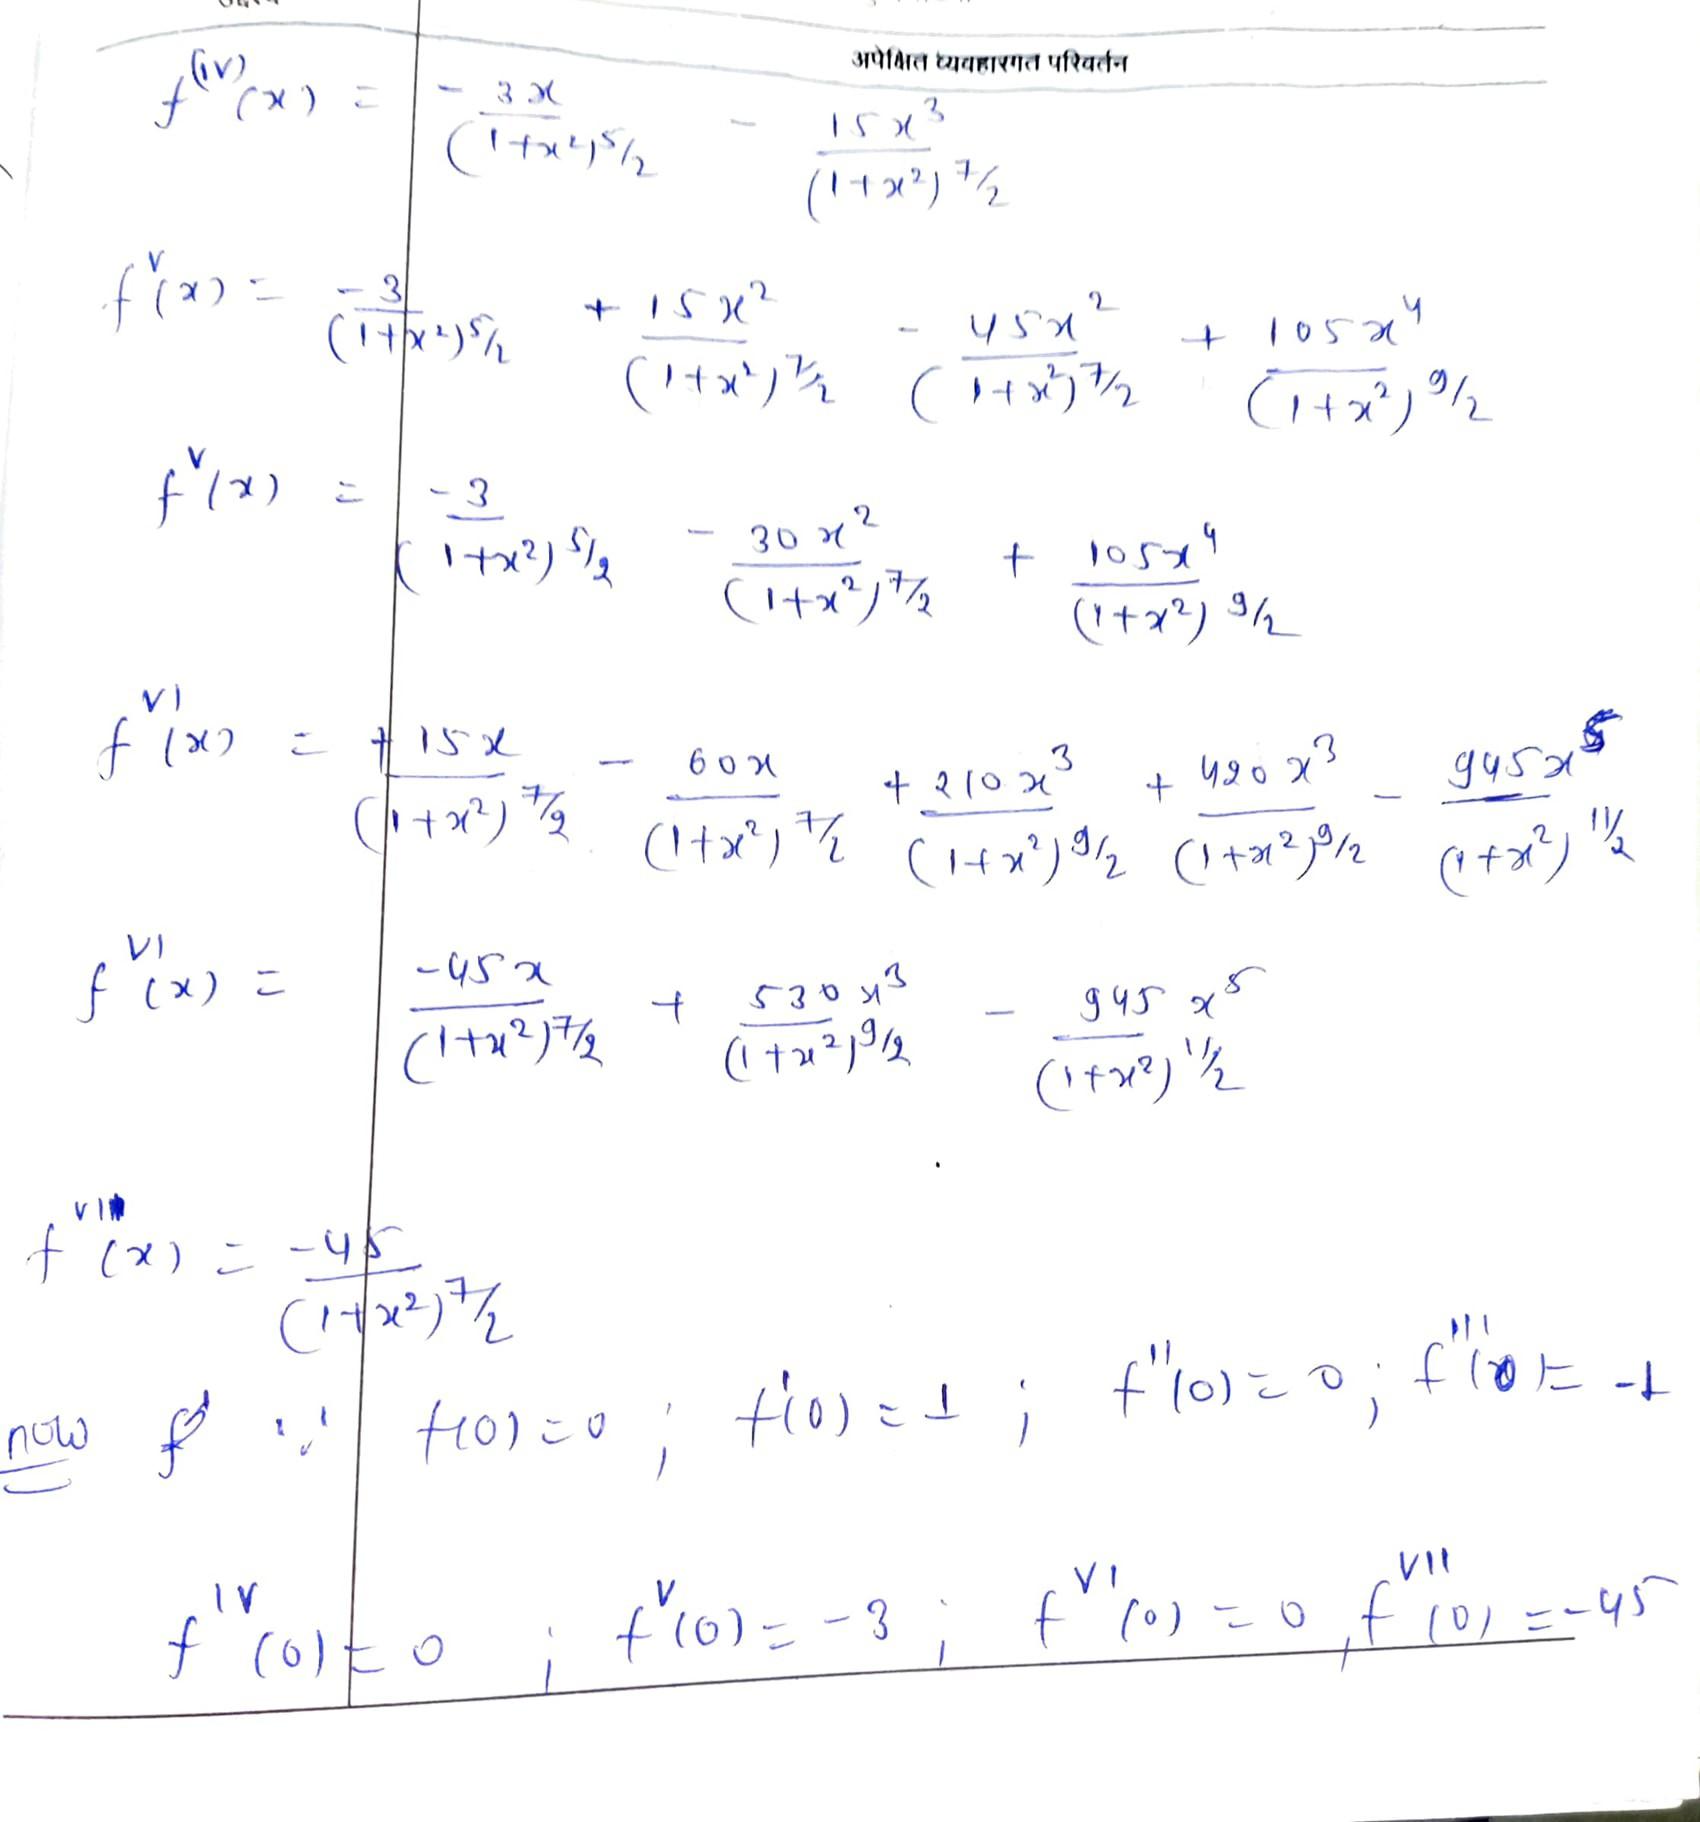 अपेक्षित व्यवहारगत परिवर्तन
f^(iv)(x) = - 3x/(1+x²)^5/2 - 15x³/(1+x²)^7/2
f^V(x) = -3/(1+x²)^5/2 + 15x²/(1+x²)^7/2 - 45x²/(1+x²)^7/2 + 105x⁴/(1+x²)^9/2
f^V(x) = -3/(1+x²)^5/2 - 30x²/(1+x²)^7/2 + 105x⁴/(1+x²)^9/2
f^VI(x) = +15x/(1+x²)^7/2 - 60x/(1+x²)^7/2 + 210x³/(1+x²)^9/2 + 420x³/(1+x²)^9/2 - 945x⁵/(1+x²)^11/2
f^VI(x) = -45x/(1+x²)^7/2 + 530x³/(1+x²)^9/2 - 945x⁵/(1+x²)^11/2
f^VII(x) = -45/(1+x²)^7/2
now ∵ f(0)=0 ; f'(0)=1 ; f''(0)=0 ; f'''(0)= -1
f^IV(0)=0 ; f^V(0)=-3 ; f^VI(0)=0, f^VII(0)=-45